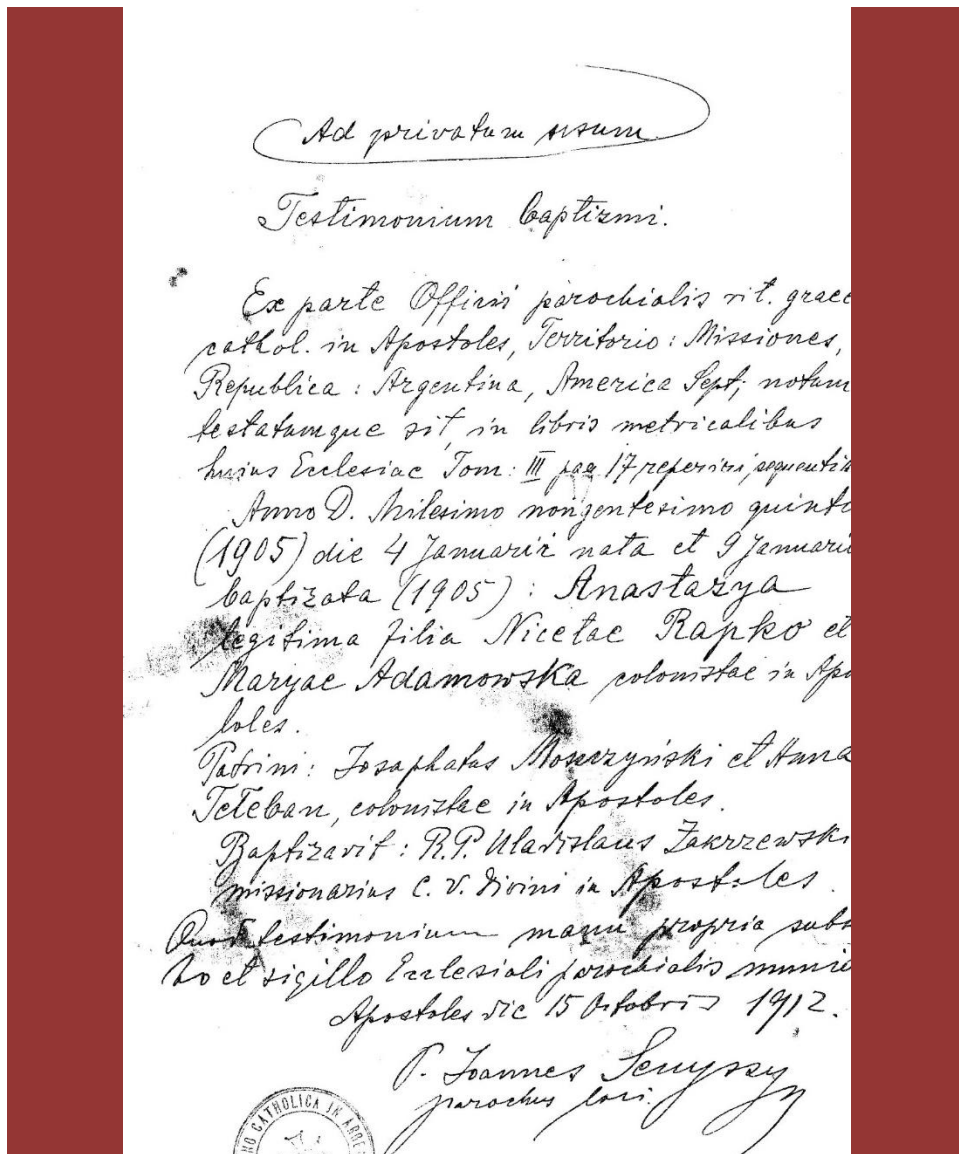 Ad privatum usum
Testimonium baptizmi.
Ex parte Officii parochialis rit. graec
cathol. in Apostoles, Territorio: Missiones,
Republica: Argentina, America Sept; notum
testatumque sit, in libris metricalibus
huius Ecclesiae Tom: III pag 17 reperiri, sequentia
Anno D. Milesimo nongentesimo quinto
(1905) die 4 Januarii nata et 9 Januarii
baptizata (1905): Anastazya
legitima filia Nicetae Rapko et
Maryae Adamowska colonistae in Apo
toles.
Patrini: Josaphatus Moszczyński et Anna
Teteban, colonistae in Apostoles.
Baptizavit: R.P. Uladislaus Zakrzewski
missionarius C. V. Divini in Apostoles.
Quod testimonium manu propria subs
bo et sigillo Ecclesiali parochialis munio
Apostoles die 15 Octobris 1912.
P. Joannes Senyszyn
parochus loci.
NO CATHOLICA IN ARGE